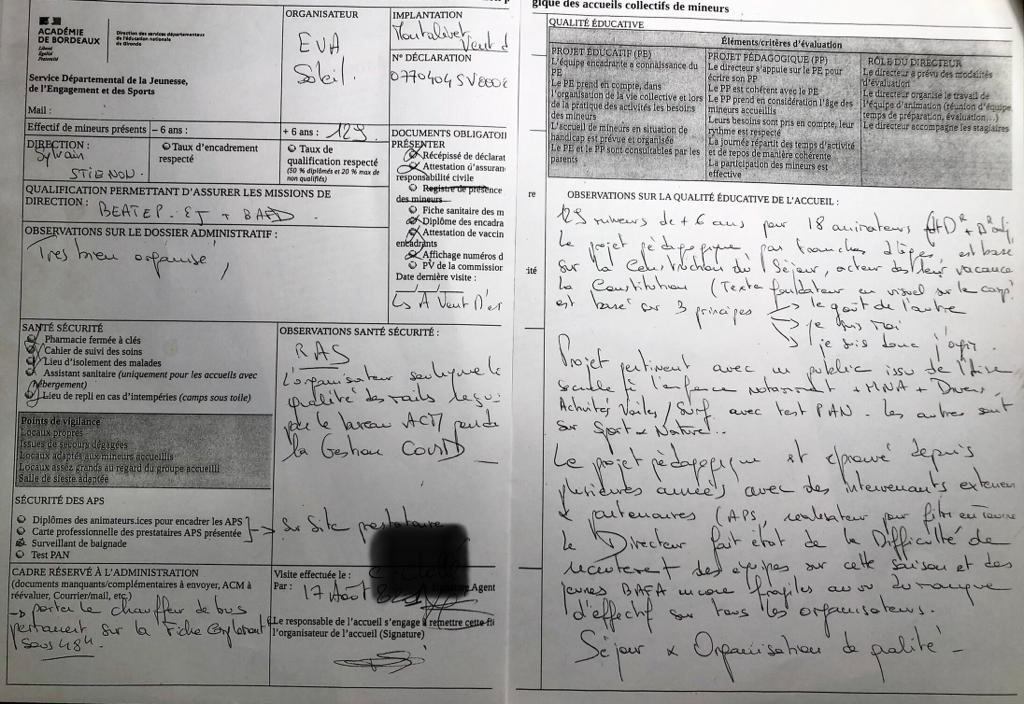 gique des accueils collectifs de mineurs
ACADÉMIE
DE BORDEAUX
Liberté
Égalité
Fraternité
Direction des services départementaux
de l'éducation nationale
de Gironde
Service Départemental de la Jeunesse,
de l'Engagement et des Sports
Mail :
ORGANISATEUR
EVA
Soleil
IMPLANTATION
Montalivet
Vent d
N° DÉCLARATION
Effectif de mineurs présents – 6 ans :
+ 6 ans : 129
DIRECTION :
Sylvain
STIENON
Taux d'encadrement
respecté
Taux de
qualification respecté
(50 % diplômés et 20 % max de
non qualifiés)
DOCUMENTS OBLIGATOI
PRÉSENTER
Récépissé de déclarat
Attestation d'assuran
responsabilité civile
Registre de présence
des mineurs
Fiche sanitaire des m
Diplôme des encadra
Attestation de vaccin
encadrants
Affichage numéros d
PV de la commission
Date dernière visite :
QUALIFICATION PERMETTANT D'ASSURER LES MISSIONS DE
DIRECTION : BEATEP
OBSERVATIONS SUR LE DOSSIER ADMINISTRATIF :
Très bien organisé
SANTÉ SÉCURITÉ
Pharmacie fermée à clés
Cahier de suivi des soins
Lieu d'isolement des malades
Assistant sanitaire (uniquement pour les accueils avec
hébergement)
Lieu de repli en cas d'intempéries (camps sous toile)
Points de vigilance
Locaux propres
Issues de secours dégagées
Locaux adaptés aux mineurs accueillis
Locaux assez grands au regard du groupe accueilli
Salle de sieste adaptée
OBSERVATIONS SANTÉ SÉCURITÉ :
RAS
L'organisateur souligne la
qualité des mails reçus
par le bureau ACM pour
la Gestion COVID
SÉCURITÉ DES APS
Diplômes des animateurs.ices pour encadrer les APS
Carte professionnelle des prestataires APS présentée
Surveillant de baignade
Test PAN
Sur Site prestataire
CADRE RÉSERVÉ À L'ADMINISTRATION
(documents manquants/complémentaires à envoyer, ACM à
réévaluer, Courrier/mail, etc.)
porter le chauffeur de bus
permanent sur la Fiche
sous 48h
Visite effectuée le :
Par : 17 Août
Agent
Le responsable de l'accueil s'engage à remettre cette fi
l'organisateur de l'accueil (Signature)
QUALITÉ ÉDUCATIVE
Éléments/critères d'évaluation
PROJET ÉDUCATIF (PE)
L'équipe encadrante a connaissance du
PE
Le PE prend en compte, dans
l'organisation de la vie collective et lors
de la pratique des activités les besoins
des mineurs
L'accueil de mineurs en situation de
handicap est prévue et organisée
Le PE et le PP sont consultables par les
parents
PROJET PÉDAGOGIQUE (PP)
Le directeur s'appuie sur le PE pour
écrire son PP
Le PP est cohérent avec le PE
Le PP prend en considération l'âge des
mineurs accueillis
Leurs besoins sont pris en compte, leur
rythme est respecté
La journée répartit des temps d'activité
et de repos de manière cohérente
La participation des mineurs est
effective
RÔLE DU DIRECTEUR
Le directeur a prévu des modalités
d'évaluation
Le directeur organise le travail de
l'équipe d'animation (réunion d'équipe,
temps de préparation, évaluation...)
Le directeur accompagne les stagiaires
re
ité
OBSERVATIONS SUR LA QUALITÉ ÉDUCATIVE DE L'ACCUEIL :
129 mineurs de + 6 ans pour 18 animateurs
Le projet pédagogique par tranches d'âges, est basé
sur la Construction du Séjour, acteur de leur vacance
La Constitution (Texte fondateur en visuel sur le camp)
est basé sur 3 principes → le goût de l'autre
→ je suis moi
→ je suis donc
Projet pertinent avec un public issu de l'Aide
sociale à l'enfance notamment + MNA + Divers
Activités Voiles / Surf avec test PAN. Les autres sont
sur Sport & Nature.
Le projet pédagogique est éprouvé depuis
plusieurs années avec des intervenants exterieu
& partenaires (APS, réalisateur pour film
le Directeur fait état de la Difficulté de
recrutement des équipes sur cette saison et des
jeunes BAFA encore fragiles au vu du manque
d'effectif sur tous les organisateurs.
Séjour & Organisation de qualité –